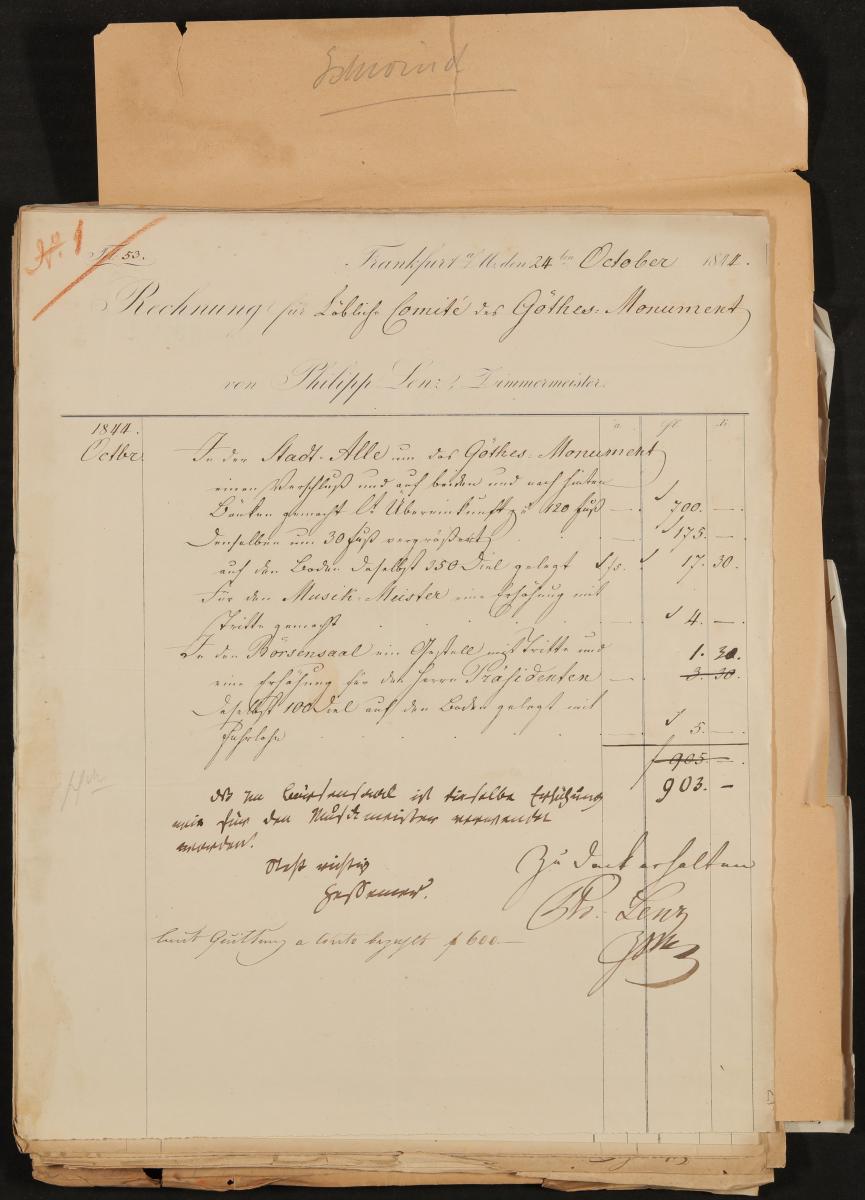 Schwind
No. 1
Fol. 53.
Frankfurt a/M. den 24ten October 1844.
Rechnung für Löbliche Comité des Göthes-Monument
von Philipp Lenz, Zimmermeister.
a. fl. x.
1844.
Octbr. In der Stadt-Alle um das Göthes-Monument
einen Verschluß und auf beiden und nach hinten
Bänken gemacht lt. Übereinkunft zu 120 Fuß — 700. —
Denselben um 30 Fuß vergrößert — 175. —
auf den Boden daselbst 350 Diel gelegt 17. 30.
Für den Musik-Meister eine Erhöhung mit
Tritte gemacht — 4. —
In den Börsensaal ein Gestell mit Tritte und 1. 30.
eine Erhöhung für den Herrn Präsidenten — 3. 30.
daselbst 100 Diel auf den Boden gelegt mit
Fuhrlohn — 5. —
f 905 —
903. —
im Börsensaal ist dieselbe Erhöhung
wie für den Musikmeister verwendet
worden.
richtig
Hessemer.
Zu Dank erhalten
Ph. Lenz
laut Quittung a Conto bezahlt f 600.—